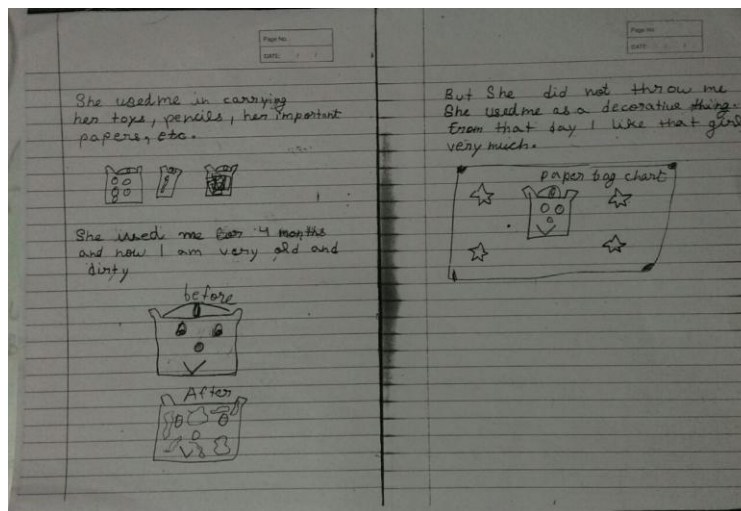 Page No.
DATE: / /
She used me in carrying
her toys, pencils, her important
papers, etc.
She used me for 4 months
and now I am very old and
dirty
before
After
Page No.
DATE: / /
But She did not throw me
She used me as a decorative thing.
from that day I like that girl
very much.
paper bag chart